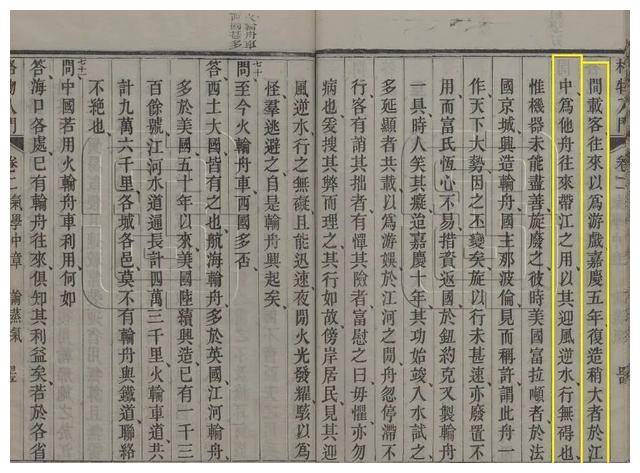 格物入門
卷一
間載客往來以爲游戲嘉慶五年復造稍大者於江
中爲他舟往來帶江之用以其迎風逆水行無碍也
惟機器未能盡善旋廢之彼時美國富拉頓者於法
國京城興造輪舟國主那波倫見而稱許謂此舟一
作天下大勢因之丕變矣旋以行未甚速亦廢置不
用而富氏恆心不易措資返國於鈕約克又製輪舟
一具時人笑其癡迨嘉慶十年其功始竣入水試之
多延顯者共載以爲游娛於江河之間舟忽停滯不
行客有誚其拙者有憚其險者富慰之曰毋懼亦勿
病也爰搜其弊而理之其行如故傍岸居民見其迎
風逆水行之無礙且能迅速夜間火光發耀駭以爲
怪羣逃避之自是輪舟興起矣
火輪舟車
西國甚多
七十
問至今火輪舟車西國多否
答西土大國皆有之也航海輪舟多於英國江河輪舟
多於美國五十年以來美國陸續興造已有一千三
百餘號江河水道通長計四萬三千里火輪車道共
計九萬六千里各城各邑莫不有輪舟與鐵道聯絡
不絕也
七十一
問中國若用火輪舟車利用何如
答海口各處已有輪舟往來俱知其利益矣若於各省
格物入門
卷一
氣學中章
論蒸氣